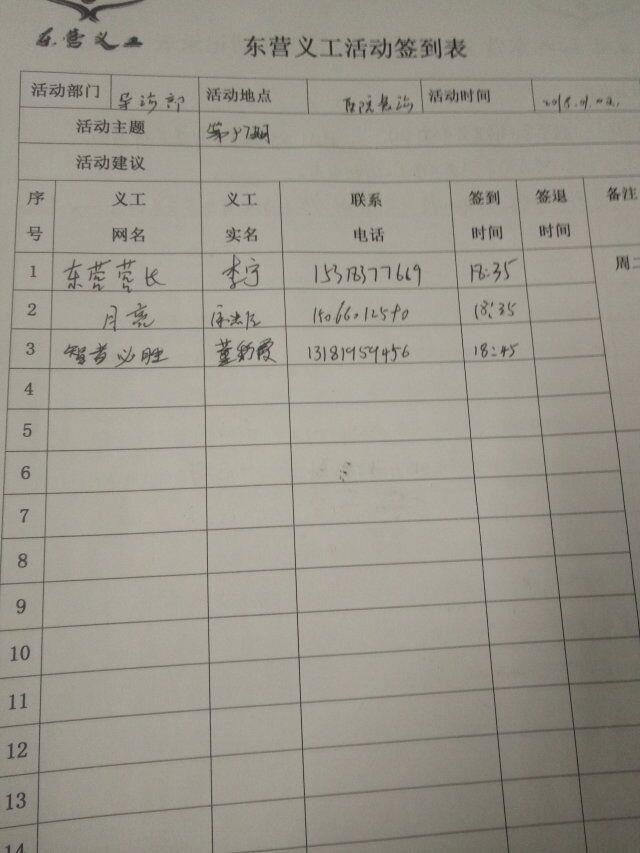 东营义工
东营义工活动签到表
活动部门 导诊部 活动地点 医院急诊 活动时间
活动主题 第57期
活动建议
序号 义工网名 义工实名 联系电话 签到时间 签退时间 备注
1 东营营长 李宁 15373577669 18:35 周二
2 月亮 18:35
3 智者必胜 董新霞 13181959456 18:45
4
5
6
7
8
9
10
11
12
13
14